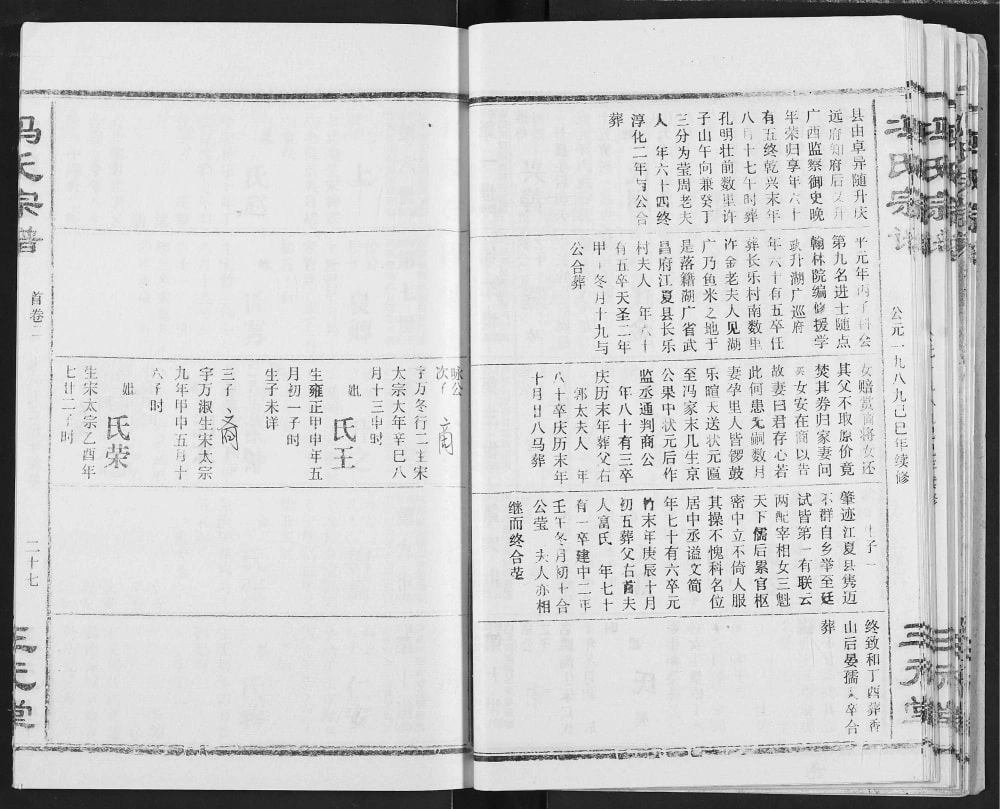 冯氏宗谱
公元一九八九己巳年续修
三元堂
县由卓异随升庆
远府知府后又升
广西监察御史晚
年荣归享年六十
有五终乾兴末年
八月十七午时葬
孔明壮前数里许
子山午向兼癸丁
三分为莹周老夫
人 年六十四终
淳化二年与公合
葬
平元年丙子科会
第九名进士随点
翰林院编修援学
政升湖广巡府
年六十有五卒任
葬长乐村南数里
许金老夫人见湖
广乃鱼米之地于
是落籍湖广省武
昌府江夏县长乐
村夫人 年六十
有五卒天圣二年
甲 冬月十九与
公合葬
女赔赏商将女还
其父不取原价竟
焚其券归家妻问
女安在商以告
故妻曰君存心若
此何患无嗣数月
妻孕里人皆锣鼓
乐喧天送状元匾
至冯家末几生京
公果中状元后作
监丞通判商公
年八十有三卒
庆历末年葬父右
郭太夫人 年
八十卒庆历末年
十月廿八马葬
生子一
肇迹江夏县隽迈
不群自乡举至廷
试皆第一有联云
两配宰相女三魁
天下儒后累官枢
密中立不倚人服
其操不愧科名位
居中丞谥文简
年七十有六卒元
末年庚辰十月
初五葬父右首夫
人富氏 年七十
有一卒建中二年
壬午冬月初十合
公莹 夫人亦相
继而终合莹
终致和丁酉葬香
山后晏孺人卒合
葬
咏公
次子
商
字万冬行二生宋
大宗大年辛巳八
月十三申时
妣
氏王
生雍正甲申年五
月初一子时
生子未详
三子
裔
字万淑生宋太宗
九年甲申五月十
六子时
妣
氏荣
生宋太宗乙酉年
七廿二子时
冯氏宗谱
首卷二
二十七
三元堂